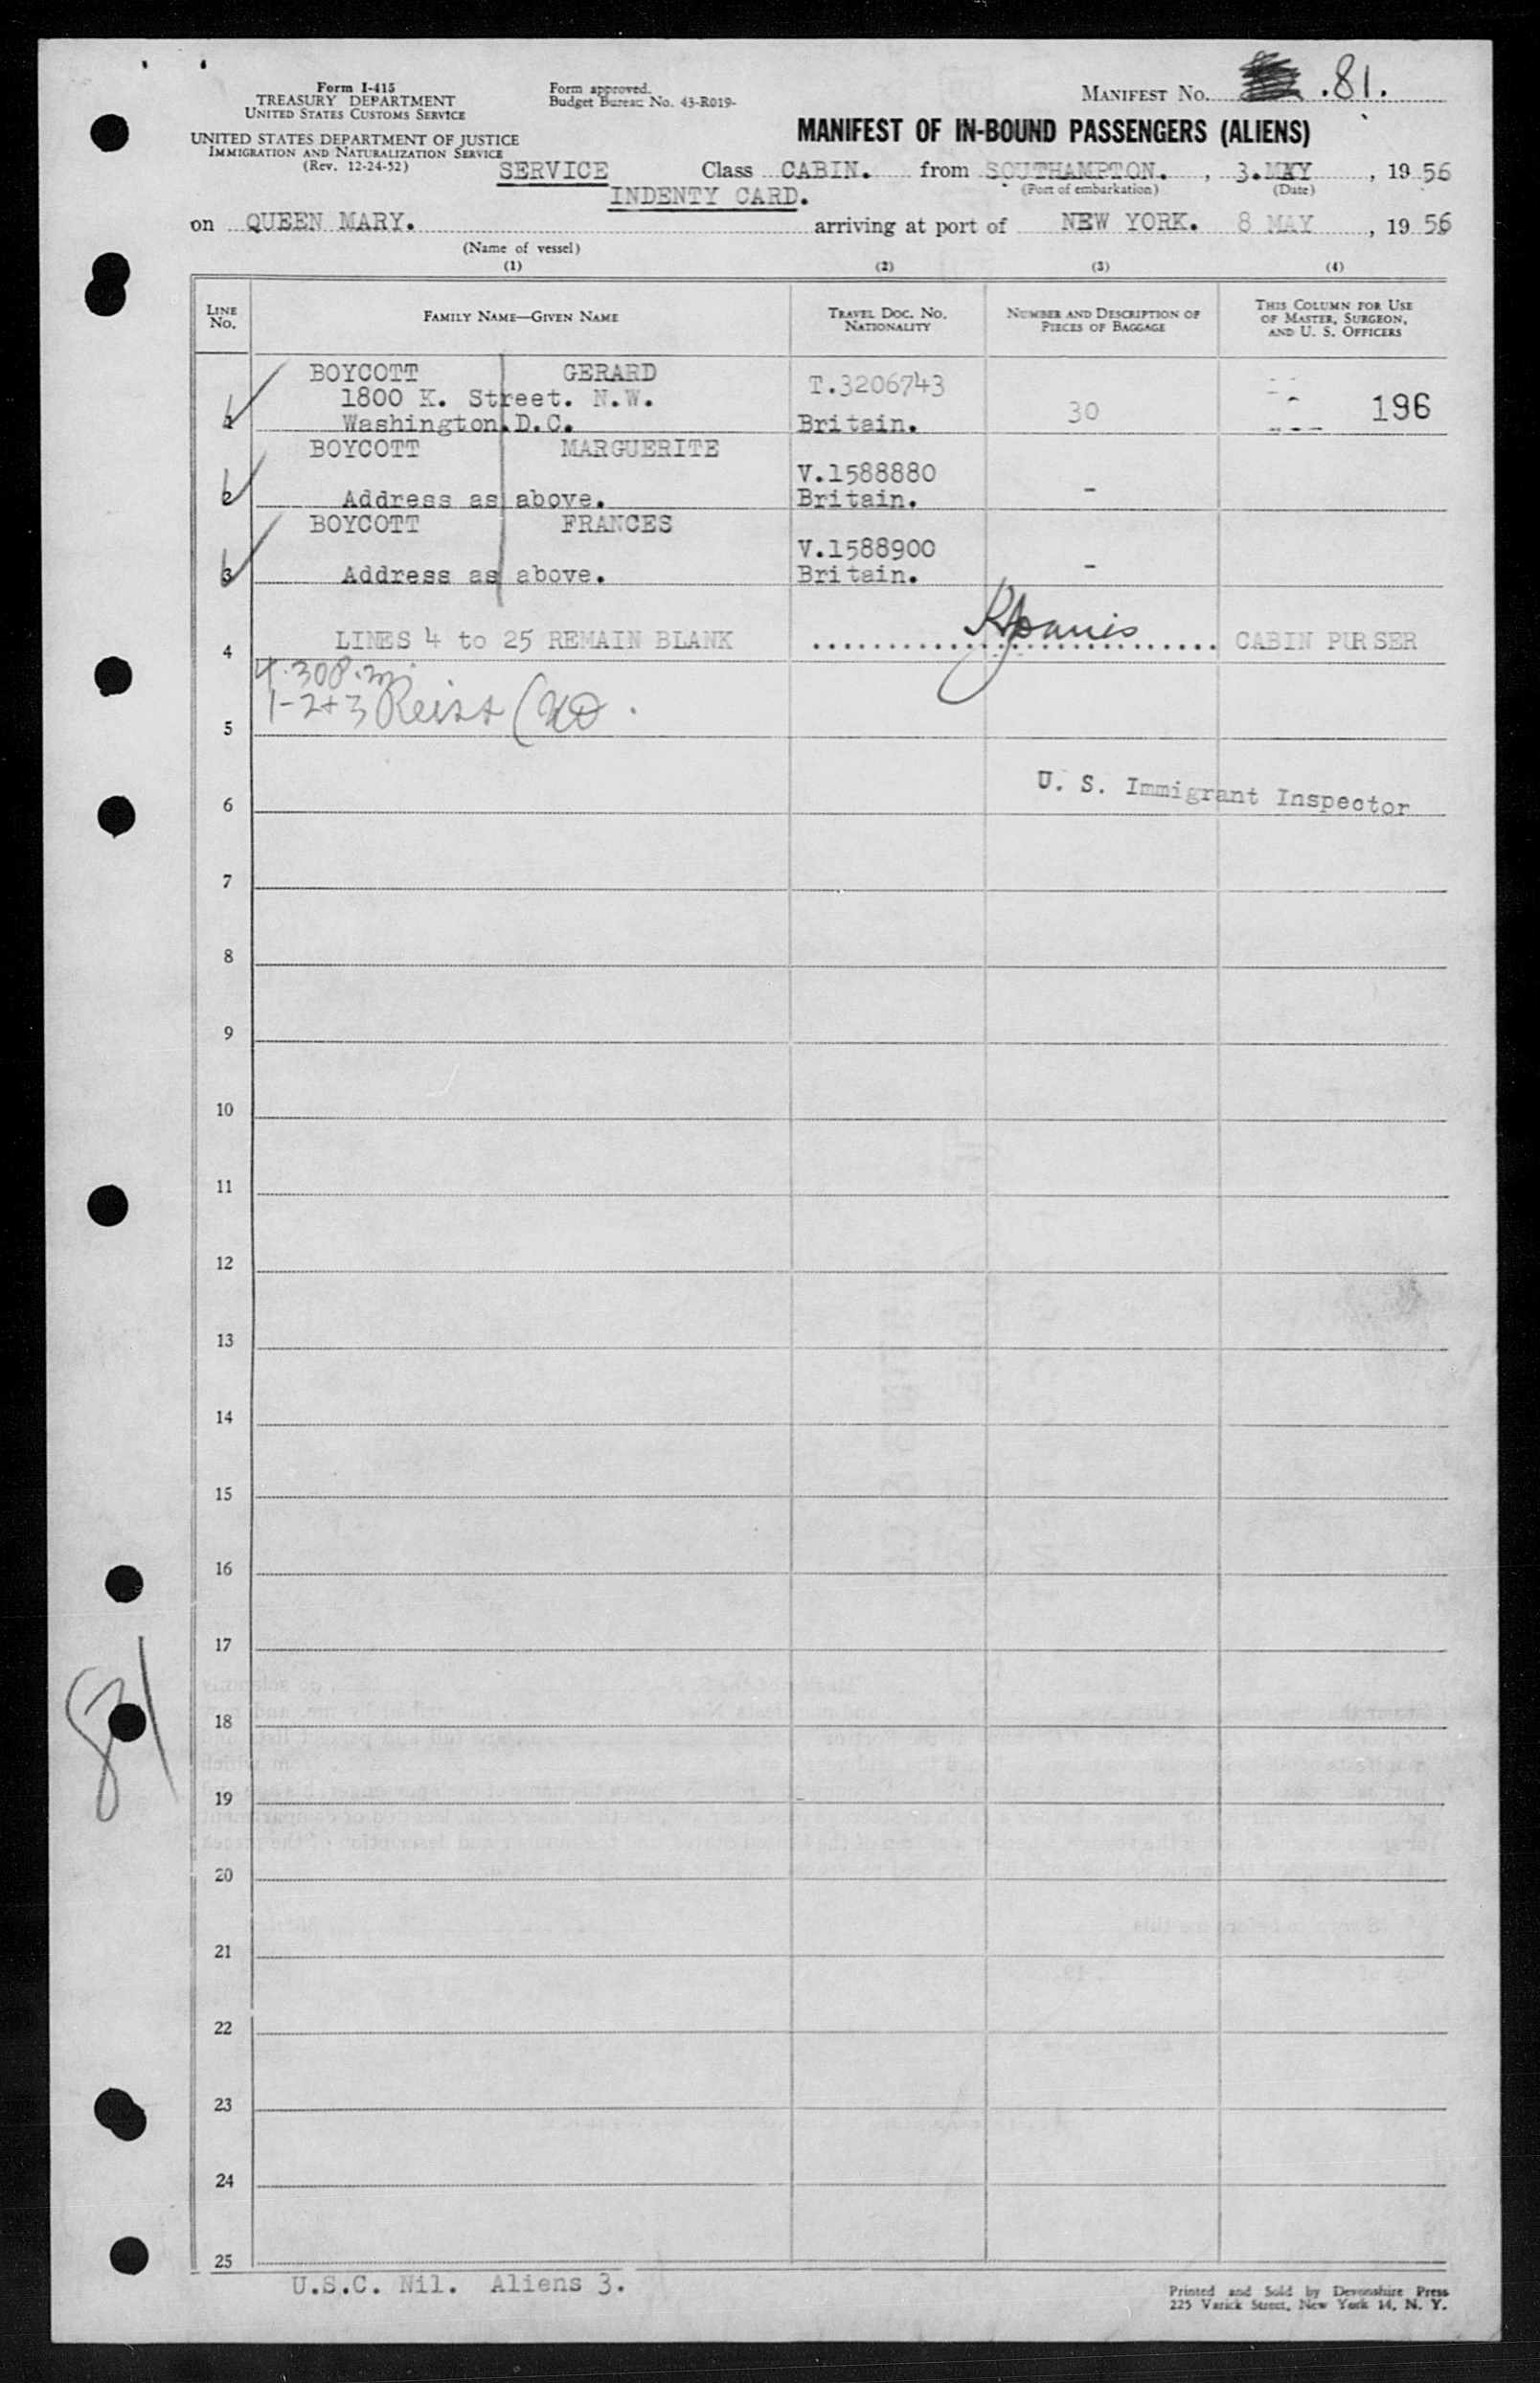 Form I-415
TREASURY DEPARTMENT
UNITED STATES CUSTOMS SERVICE
UNITED STATES DEPARTMENT OF JUSTICE
IMMIGRATION AND NATURALIZATION SERVICE
(Rev. 12-24-52)
Form approved.
Budget Bureau No. 43-R019-
MANIFEST NO. .81.
MANIFEST OF IN-BOUND PASSENGERS (ALIENS)
SERVICE Class CABIN. from SOUTHAMPTON. , 3.MAY , 1956
INDENTY CARD. (Port of embarkation) (Date)
on QUEEN MARY. arriving at port of NEW YORK. 8 MAY , 1956
(Name of vessel)
(1) (2) (3) (4)
LINE NO. FAMILY NAME—GIVEN NAME TRAVEL DOC. NO. NATIONALITY NUMBER AND DESCRIPTION OF PIECES OF BAGGAGE THIS COLUMN FOR USE OF MASTER, SURGEON, AND U. S. OFFICERS
BOYCOTT GERARD
1800 K. Street. N.W. T.3206743
1 Washington.D.C. Britain. 30 196
BOYCOTT MARGUERITE
V.1588880
2 Address as above. Britain. -
BOYCOTT FRANCES
V.1588900
3 Address as above. Britain. -
4 LINES 4 to 25 REMAIN BLANK CABIN PURSER
1-2+3 Reiss
5
U. S. Immigrant Inspector
6
7
8
9
10
11
12
13
14
15
16
17
81
18
19
20
21
22
23
24
25
U.S.C. Nil. Aliens 3.
Printed and Sold by Devonshire Press
225 Varick Street, New York 14, N. Y.